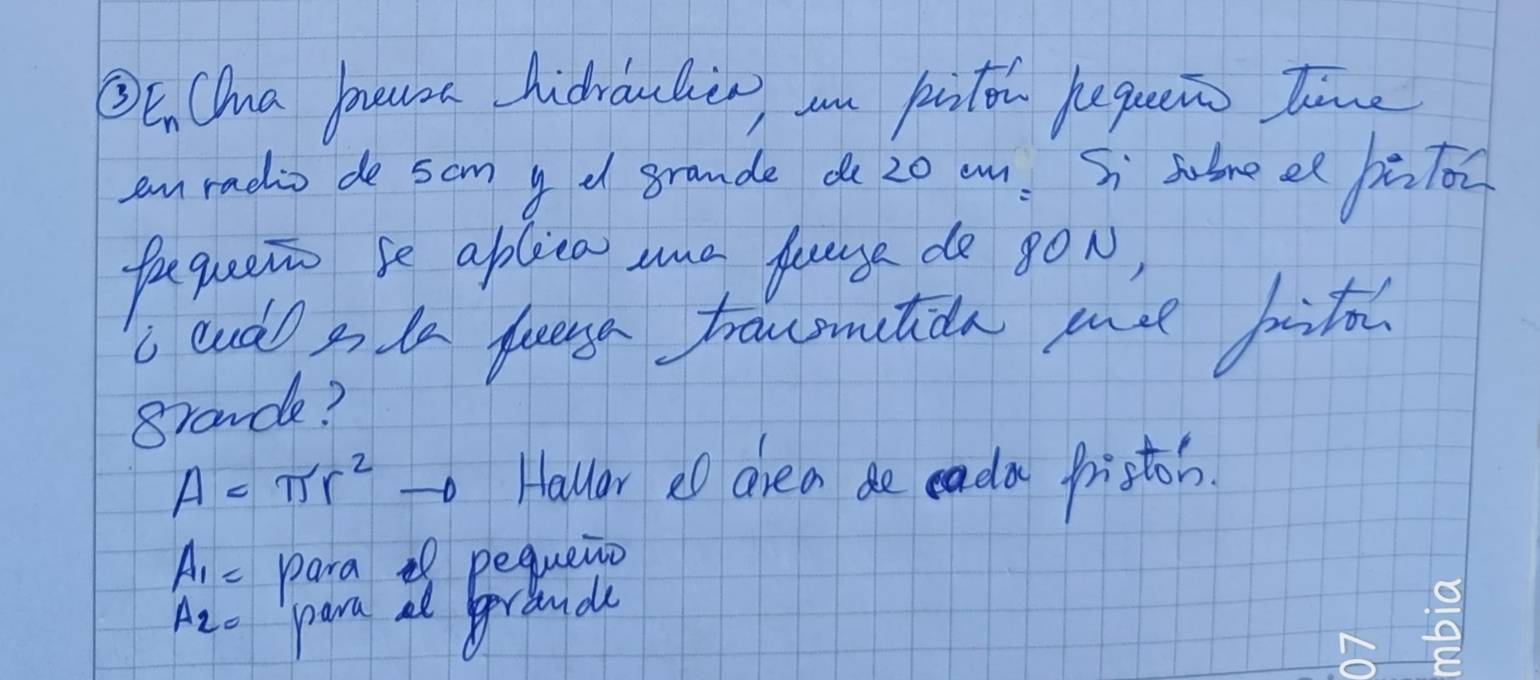 ③ En Una prensa hidráulica, un pistón pequeño tiene
un radio de 5 cm y el grande de 20 cm. Si sobre el pistón
pequeño se aplica una fuerza de 80 N,
¿cuál es la fuerza transmitida en el pistón
grande?
A = πr² → Hallar el área de cada pistón.
A₁ = para el pequeño
A₂ = para el grande
07
mbia